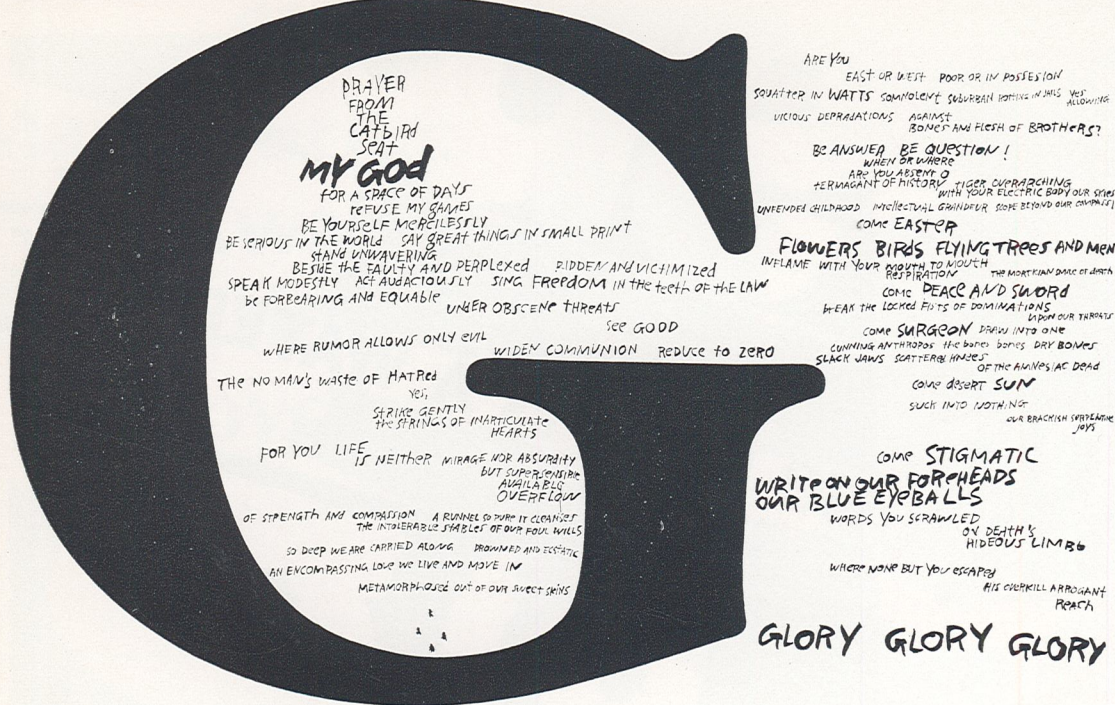 G
PRAYER
FROM
THE
CATBIRD
SEAT
MY GOD
FOR A SPACE OF DAYS
REFUSE MY GAMES
BE YOURSELF MERCILESSLY
BE SERIOUS IN THE WORLD SAY GREAT THINGS IN SMALL PRINT
STAND UNWAVERING
BESIDE THE FAULTY AND PERPLEXED RIDDEN AND VICTIMIZED
SPEAK MODESTLY ACT AUDACIOUSLY SING FREEDOM IN THE TEETH OF THE LAW
BE FORBEARING AND EQUABLE
UNDER OBSCENE THREATS
SEE GOOD
WHERE RUMOR ALLOWS ONLY EVIL
WIDEN COMMUNION REDUCE TO ZERO
THE NO MAN'S WASTE OF HATRED
YES,
STRIKE GENTLY
THE STRINGS OF INARTICULATE
HEARTS
FOR YOU LIFE
IS NEITHER MIRAGE NOR ABSURDITY
BUT SUPERSENSIBLE
AVAILABLE
OVERFLOW
OF STRENGTH AND COMPASSION A RUNNEL SO PURE IT CLEANSES
THE INTOLERABLE STABLES OF OUR FOUL WILLS
SO DEEP WE ARE CARRIED ALONG DROWNED AND ECSTATIC
AN ENCOMPASSING LOVE WE LIVE AND MOVE IN
METAMORPHOSED OUT OF OUR SWEET SKINS
ARE YOU
EAST OR WEST POOR OR IN POSSESION
SQUATTER IN WATTS SOMNOLENT SUBURBAN ROTTING IN JAILS YES
ALLOWING
VICIOUS DEPRADATIONS AGAINST
BONES AND FLESH OF BROTHERS?
BE ANSWER BE QUESTION!
WHEN OR WHERE
ARE YOU ABSENT O
TERMAGANT OF HISTORY TIGER OVERARCHING
WITH YOUR ELECTRIC BODY OUR SKIES
UNFENDED CHILDHOOD INTELLECTUAL GRANDEUR SCOPE BEYOND OUR COMPASS!
COME EASTER
FLOWERS BIRDS FLYING TREES AND MEN
INFLAME WITH YOUR MOUTH TO MOUTH
RESPIRATION THE MORTICIAN OF DEATH
COME PEACE AND SWORD
BREAK THE LOCKED FISTS OF DOMINATIONS
UPON OUR THROATS
COME SURGEON DRAW INTO ONE
CUNNING ANTHROPOS THE BONES BONES DRY BONES
SLACK JAWS SCATTERED KNEES
OF THE AMNESIAC DEAD
COME DESERT SUN
SUCK INTO NOTHING
OUR BRACKISH SERPENTINE
JOYS
COME STIGMATIC
WRITE ON OUR FOREHEADS
OUR BLUE EYEBALLS
WORDS YOU SCRAWLED
ON DEATH'S
HIDEOUS LIMBS
WHERE NONE BUT YOU ESCAPED
HIS OVERKILL ARROGANT
REACH
GLORY GLORY GLORY